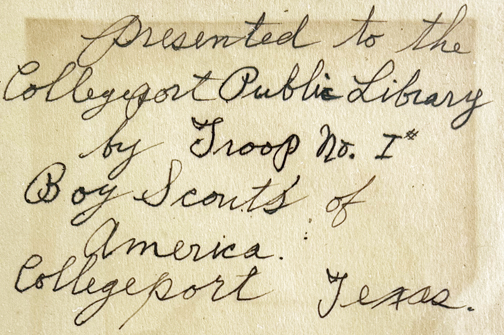 presented to the
Collegeport Public Library
by Troop No. I*
Boy Scouts of
America.
Collegeport Texas.